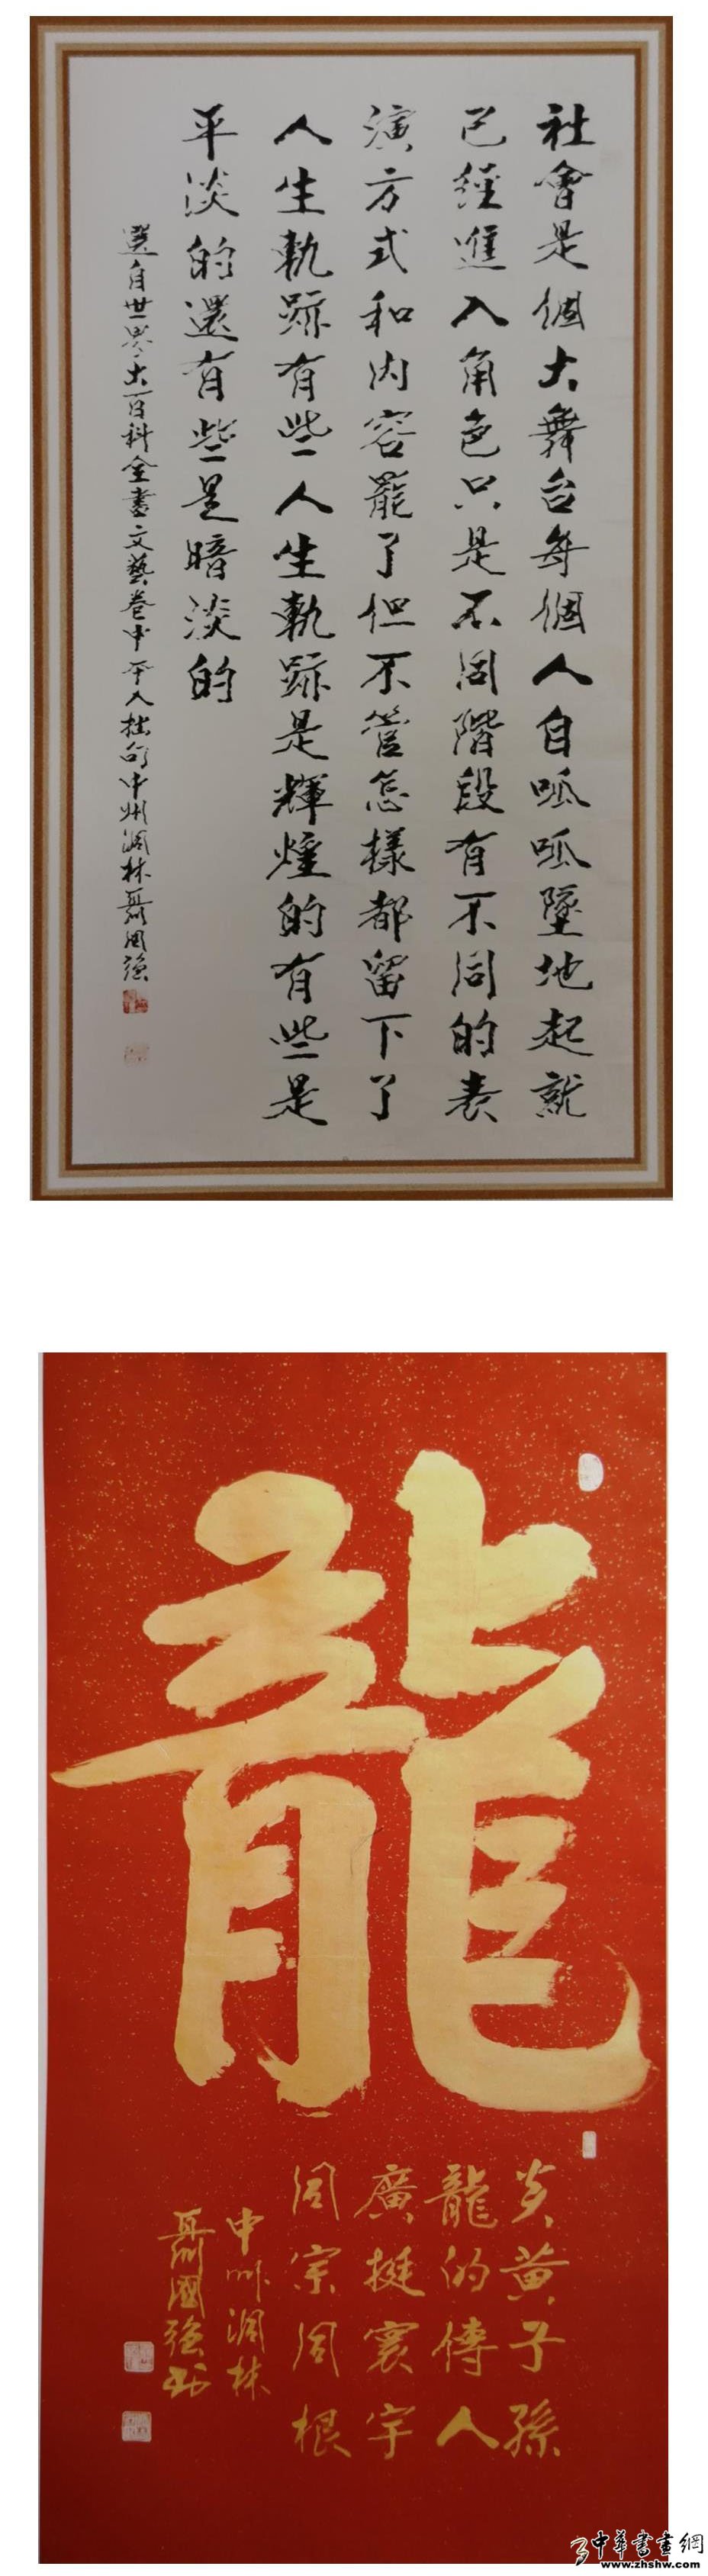 社會是個大舞台每個人自呱呱墜地起就
已經進入角色只是不同階段有不同的表
演方式和内容罷了但不管怎樣都留下了
人生軌跡有些人生軌跡是輝煌的有些是
平淡的還有些是暗淡的
選自世界大百科全書文藝卷中平人拙句中州澗林聶國強
龍
炎黃子孫
龍的傳人
廣挺寰宇
同宗同根
中州澗林
聶國強书
中華書畫網
www.zhshw.com